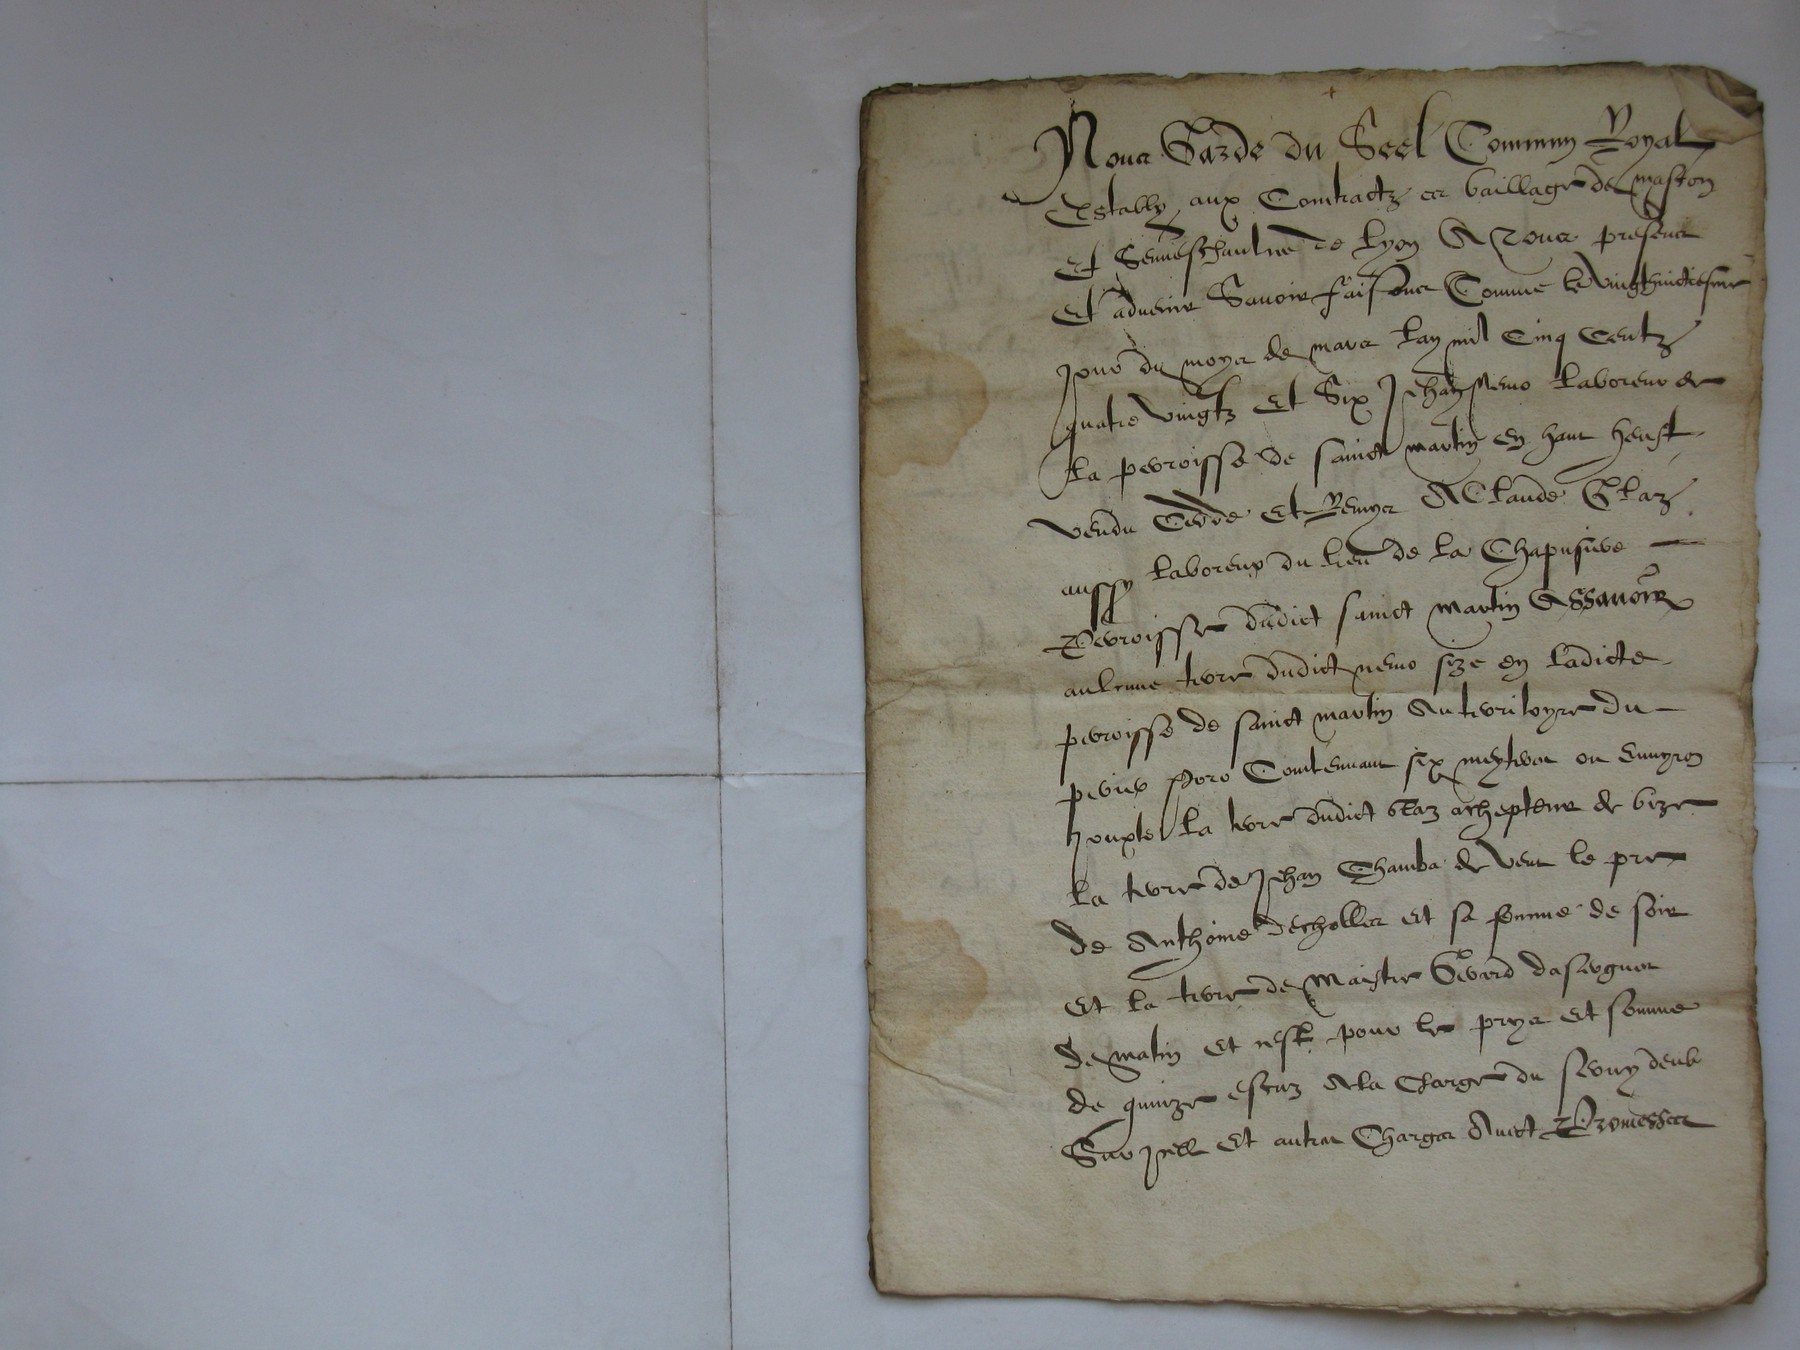 Nous Garde du Seel Commun Royal
Estably aux Contractz es bailliage de mascon
Et Seneschaulcee de Lyon A Tous presens
Et advenir Savoir faisons Comme le vingthuictiesme
jour du moys de mars lan mil Cinq Centz
quatre vingtz Et Six Jehan laboreur de
la perroisse de sainct martin en haut heust
vendu Cedde Et Remys A Claude Glaz
aussy laboreur du lieu de la Chapusiere
Perroisse dudict sainct martin Assavoir
une terre dudict size en ladicte
perroisse de sainct martin Au territoyre du
Contenant six meyteres ou environ
Jouxte la terre dudict Glaz achepteur de bize
la terre de Jehan Chamba de vent le pre
de Anthoine et sa femme de soir
Et la terre de Maistre Gerard
de matin Et cest pour le prys Et somme
de quinze escuz A la Charge du servy deub
Sur Jcelle Et autres Charges Avect Promesses